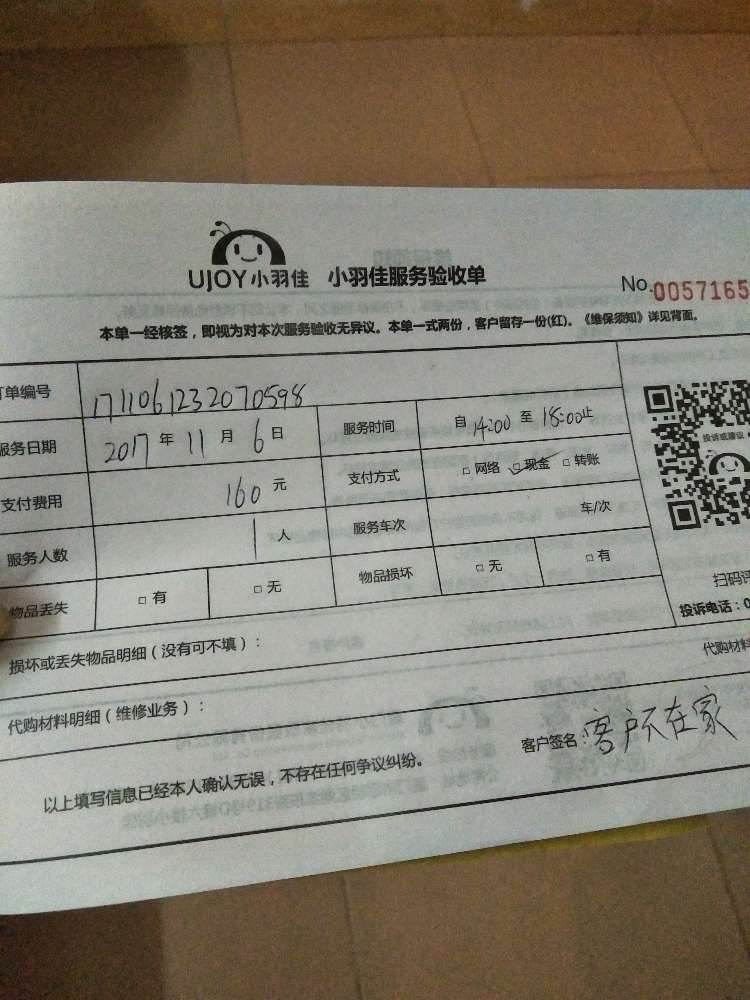 UJOY小羽佳 小羽佳服务验收单
No.0057165
本单一经核签，即视为对本次服务验收无异议。本单一式两份，客户留存一份(红)。《维保须知》详见背面。
订单编号 1711061232070598
服务日期 2017 年 11 月 6 日 服务时间 自 14:00 至 18:00 止
支付费用 160 元 支付方式 □ 网络 ☑ 现金 □ 转账
服务人数 1 人 服务车次 车/次
物品丢失 □ 有 □ 无 物品损坏 □ 无 □ 有
投诉或建议
扫码评
投诉电话：0
损坏或丢失物品明细（没有可不填）：
代购材料
代购材料明细（维修业务）：
以上填写信息已经本人确认无误，不存在任何争议纠纷。
客户签名：客户不在家